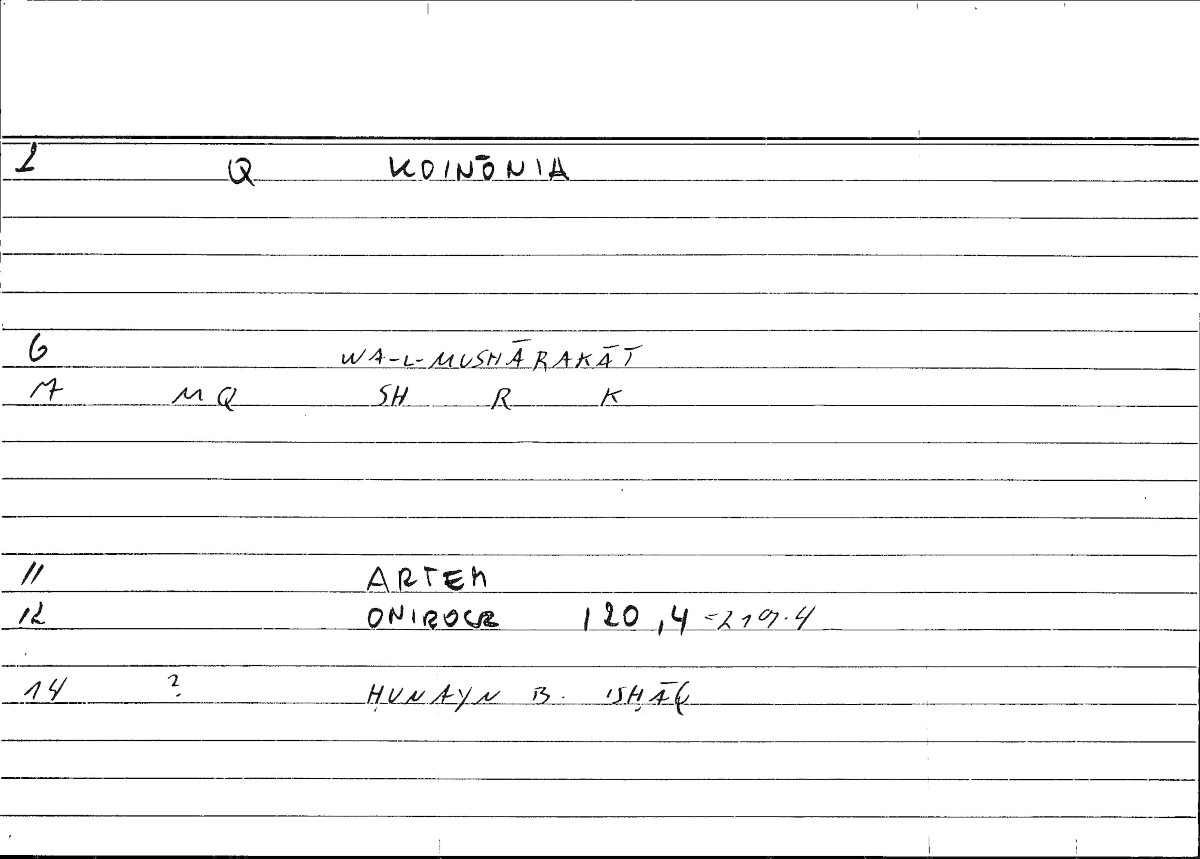 1 Q KOINŌNIA
6 WA-L-MUSHĀRAKĀT
7 MQ SH R K
11 ARTEM
12 ONIROCR 120,4 =219.4
14 ? ḤUNAYN B. ISḤĀQ